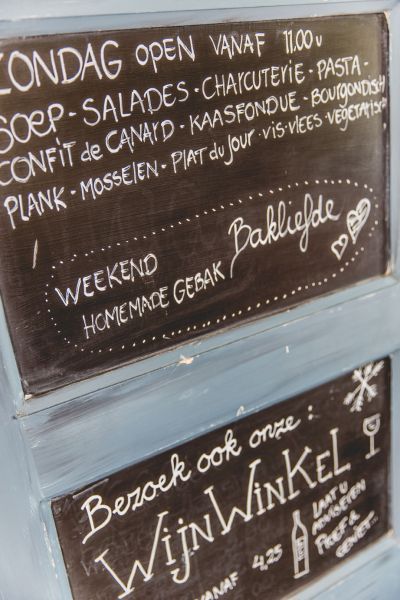 ZONDAG OPEN VANAF 11.00 U
SOEP - SALADES - CHARCUTERIE - PASTA -
CONFIT de CANARD - KAASFONDUE - BOURGONDISCH
PLANK - MOSSELEN - PLAT du JOUR - VIS-VLEES-VEGETARISCH
WEEKEND
HOMEMADE GEBAK
Bakliefde
Bezoek ook onze :
WIJNWINKEL
VANAF 4,25
LAAT U
ADVISEREN
PROEF &
GENIET...